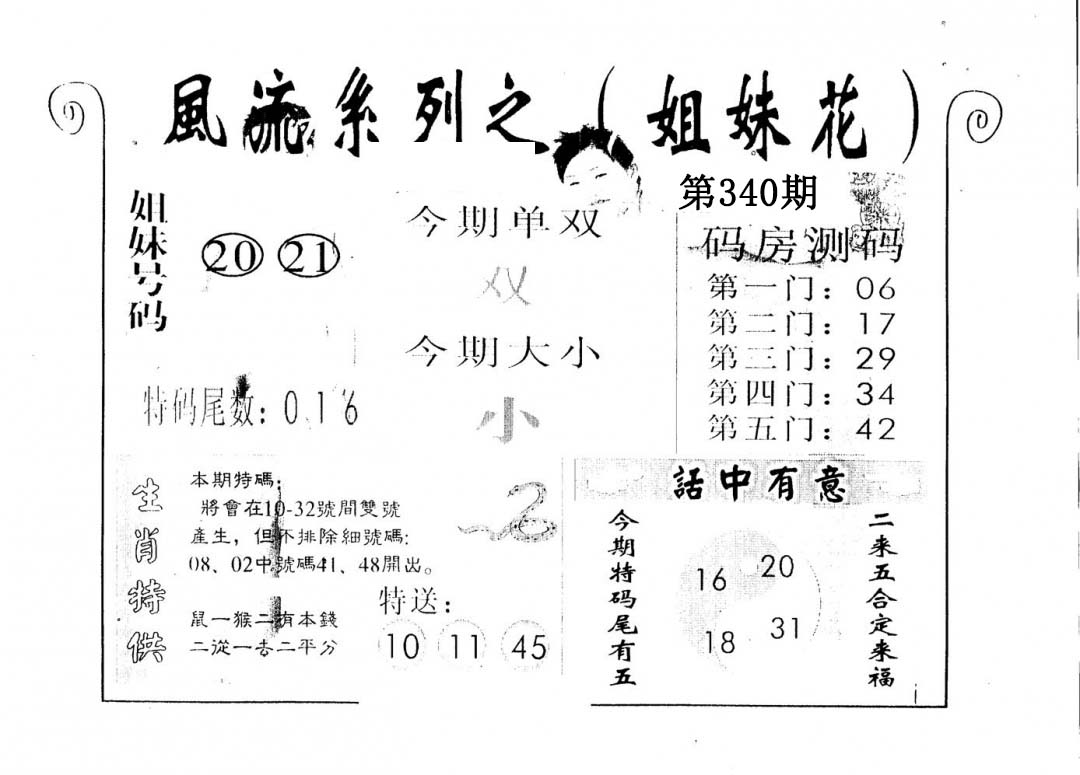 風流系列之（姐妹花）
第340期
姐妹号码
20 21
特码尾数：0.1 6
今期单双
双
今期大小
小
码房测码
第一门：06
第二门：17
第三门：29
第四门：34
第五门：42
生肖持供
本期特碼：
將會在10-32號間雙號
產生，但不排除細號碼:
08、02中號碼41、48開出。
鼠一猴二有本錢
二從一去二平分
2
特送：
10 11 45
話中有意
今期特码尾有五
16 20
18 31
二来五合定来福